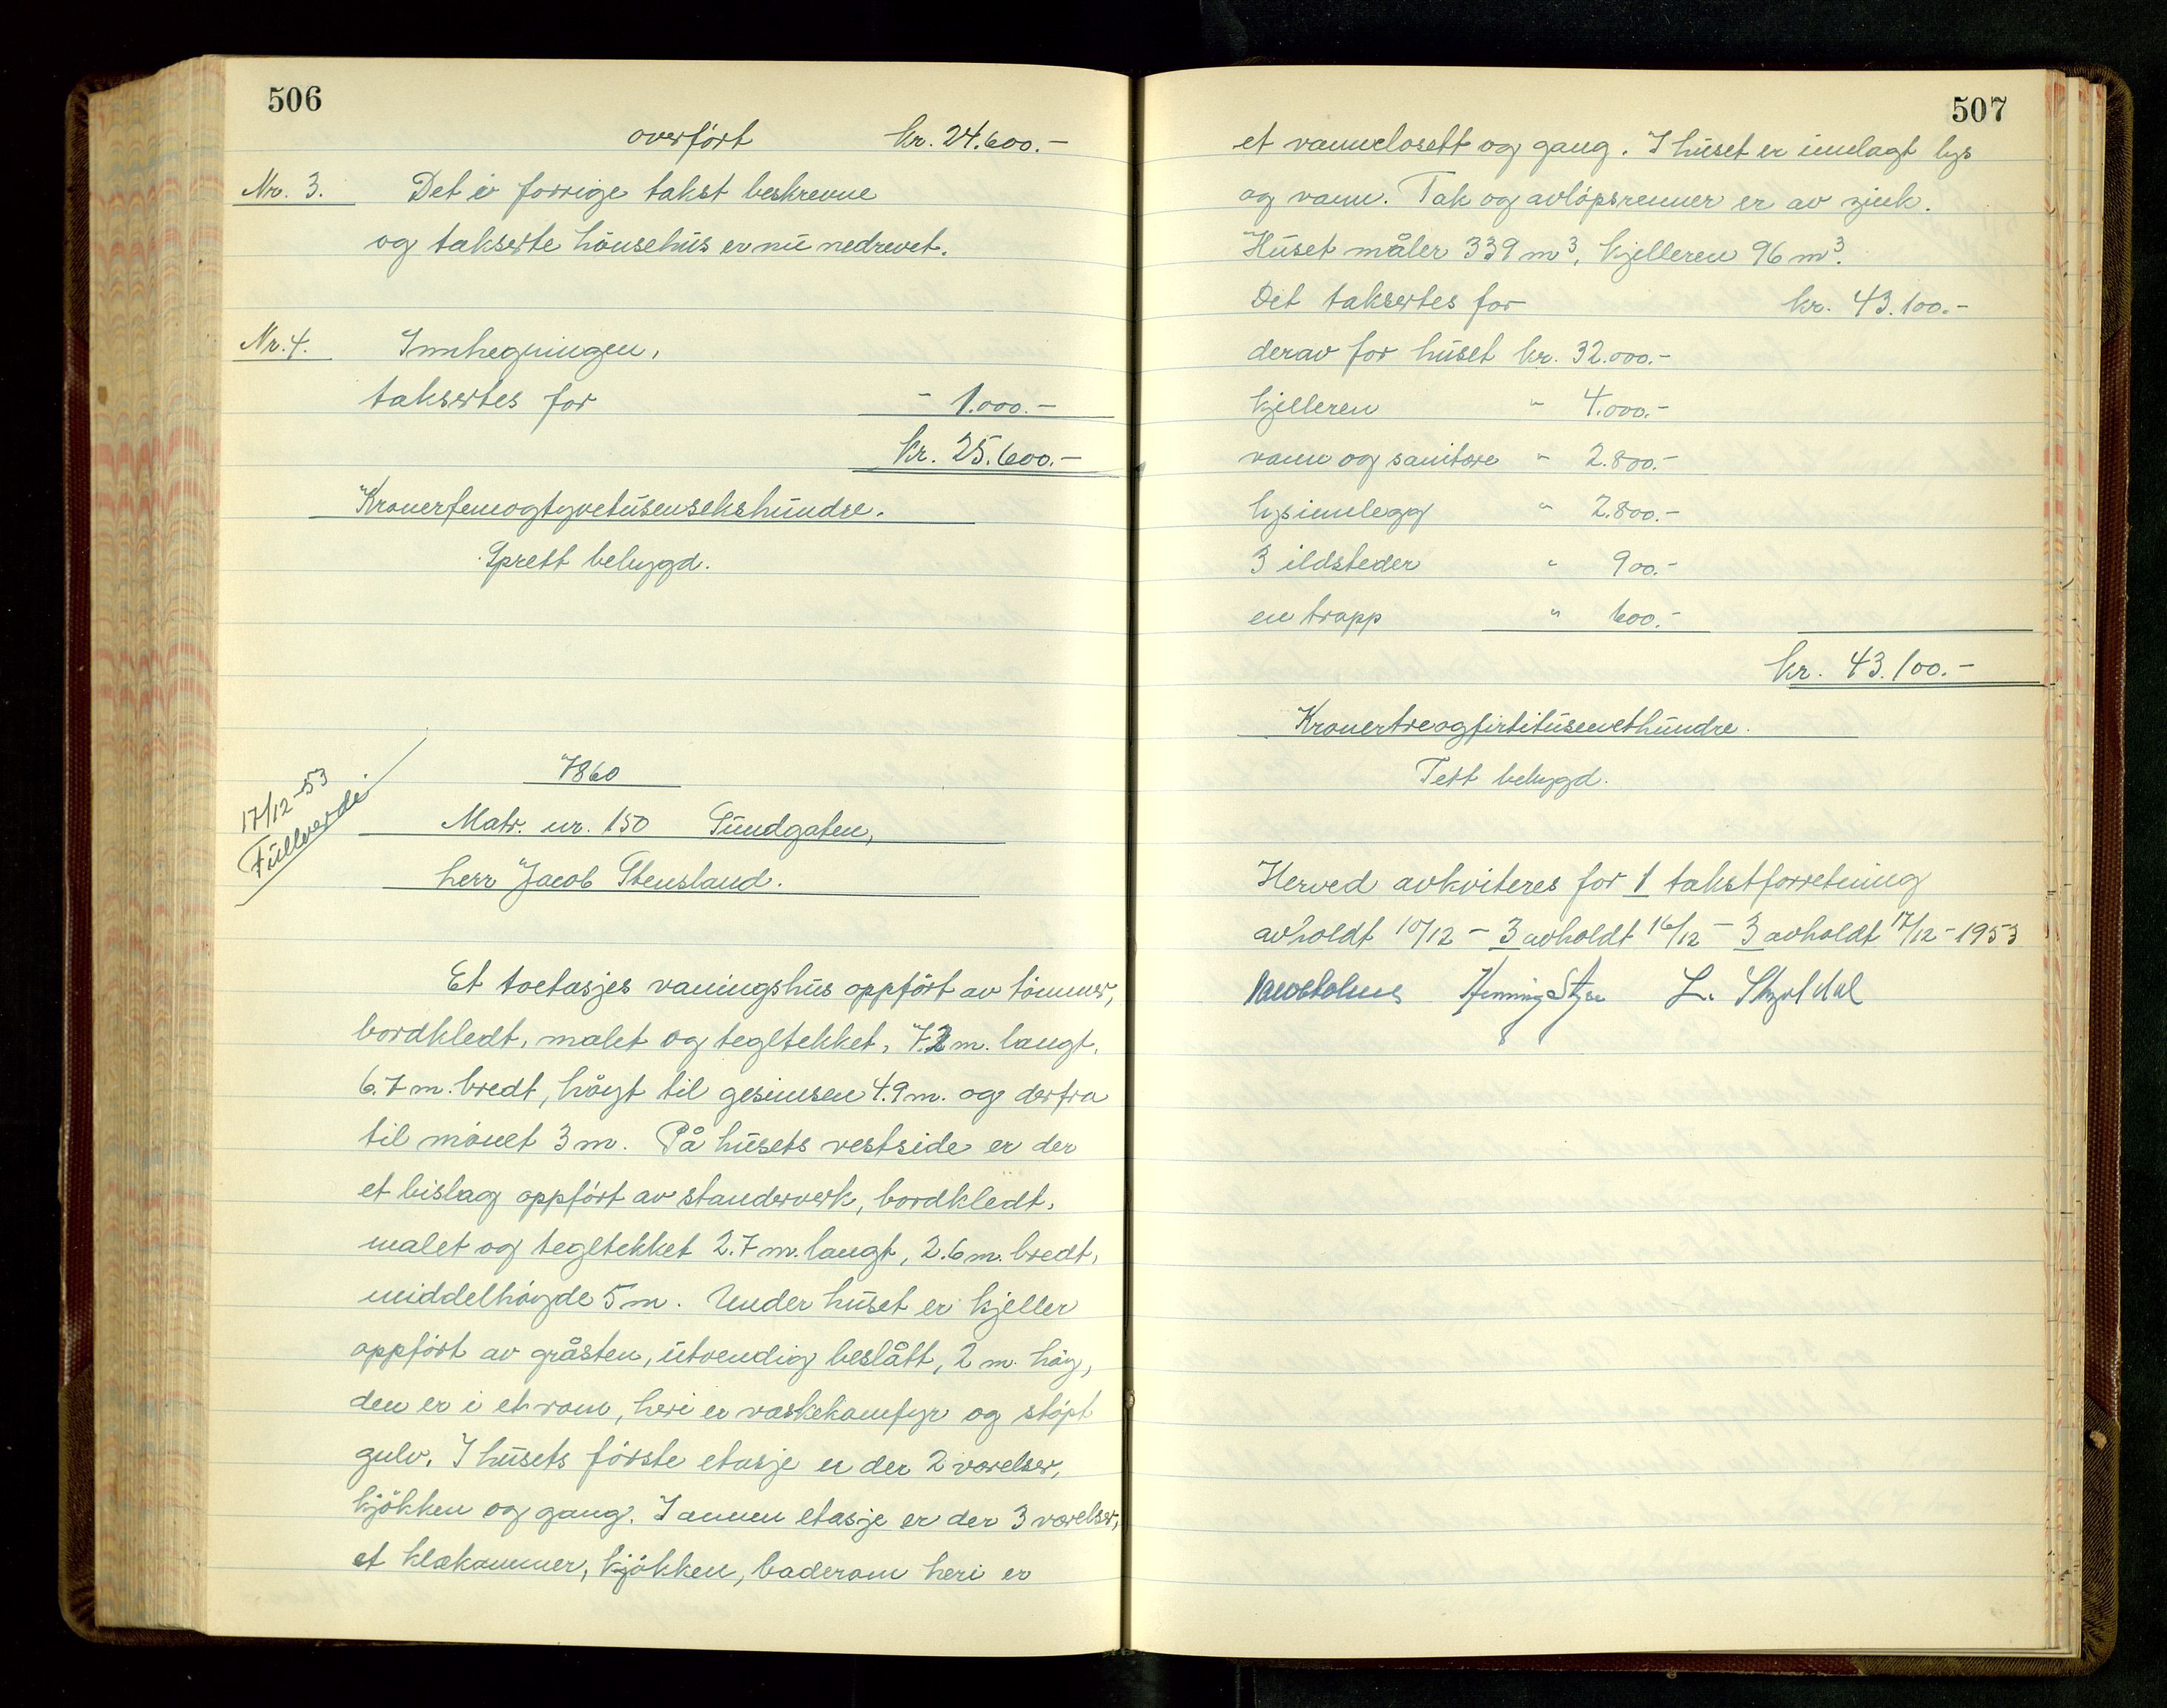 506
overført kr. 24.600.-
Nr. 3. Det i forrige takst beskrevne
og takserte hönsehus er nu nedrevet.
Nr. 4. Innhegningen,
taksertes for - 1.000.-
kr. 25.600.-
Kronerfemogtyvetusensekshundre.
Sprett bebygd.
17/12-53
Fullverdi
7860
Matr. nr. 150 Sundgaten,
herr Jacob Stensland.
Et toetasjes vaningshus oppført av tömmer,
bordkledt, malet og tegltekket, 7.2 m. langt,
6.7 m. bredt, höyt til gesimsen 4.9 m. og derfra
til mönet 3 m. På husets vestside er der
et bislag oppført av standerverk, bordkledt,
malet og tegltekket 2.7 m. langt, 2.6 m. bredt,
middelhöyde 5 m. Under huset er kjeller
oppført av gråsten, utvendig beslått, 2 m. höy,
den er i et rom, heri er vaskekomfyr og stöpt
gulv. I husets förste etasje er der 2 værelser,
kjökken og gang. I annen etasje er der 3 værelser,
et klækammer, kjökken, baderom heri er
507
et vannclosett og gang. I huset er innlagt lys
og vann. Tak og avlöpsrenner er av zink.
Huset måler 339 m³, kjelleren 96 m³.
Det taksertes for kr. 43.100.-
derav for huset kr. 32.000.-
kjelleren " 4.000.-
vann og sanitære " 2.800.-
lysinnlegg " 2.800.-
3 ildsteder " 900.-
en trapp " 600.-
kr. 43.100.-
Kronertreogførtitusenethundre.
Tett bebygd.
Herved avkviteres for 1 takstforretning
avholdt 10/12 - 3 avholdt 16/12 - 3 avholdt 17/12 - 1953
Henning
L.